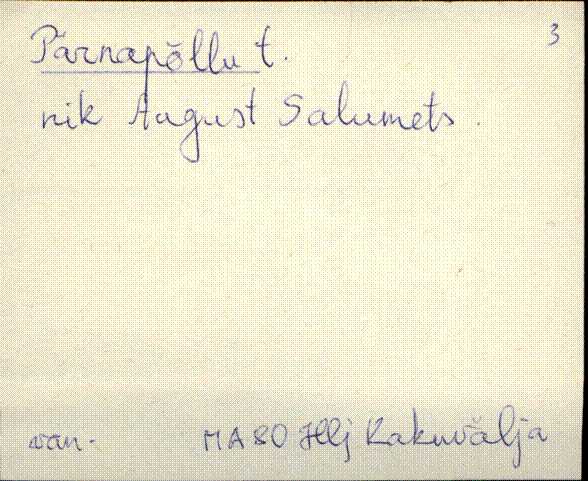 Pärnapõllu t. 3
nik August Salumets.
van. MA 80 Hlj Kakuvälja